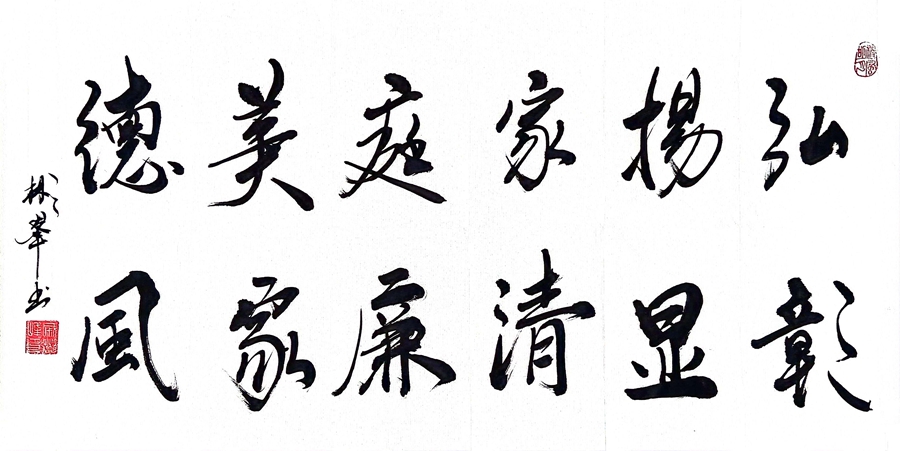 弘揚家庭美德
彰显清廉家風
彬峯书